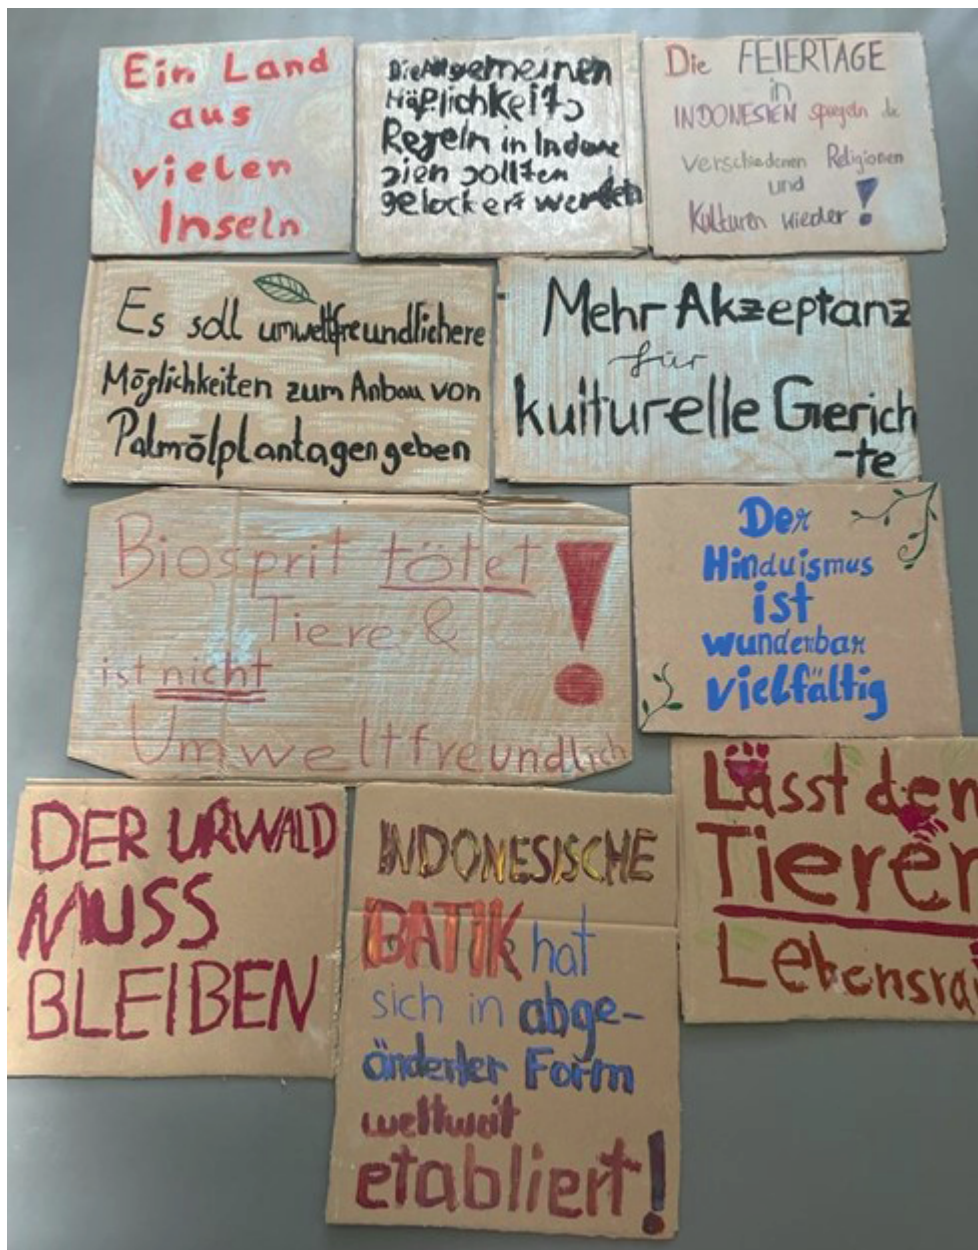 Ein Land
aus
vielen
Inseln
Die Allgemeinen
Höflichkeits
Regeln in Indone
sien sollten
gelockert werden
Die FEIERTAGE
in
INDONESIEN spiegeln die
verschiedenen Religionen
und
Kulturen wieder!
Es soll umweltfreundlichere
Möglichkeiten zum Anbau von
Palmölplantagen geben
Mehr Akzeptanz
für
kulturelle Gerich
-te
Biosprit tötet !
Tiere &
ist nicht
Umweltfreundlich
Der
Hinduismus
ist
wunderbar
vielfältig
DER URWALD
MUSS
BLEIBEN
INDONESISCHE
BATIK hat
sich in abge-
änderter Form
weltweit
etabliert!
Lasst den
Tieren
Lebensra